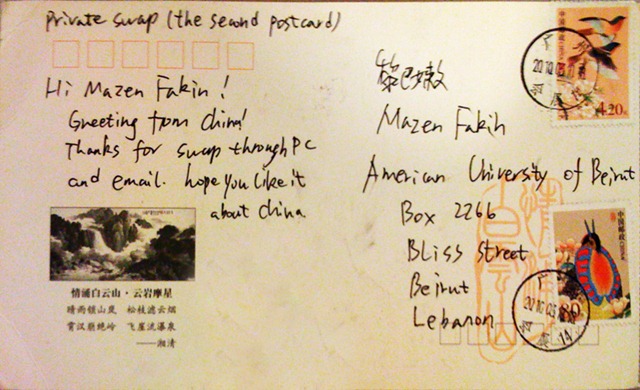 Private swap (the second postcard)
Hi Mazen Fakin!
Greeting from China!
Thanks for swap through PC
and email. hope you like it
about china
情涌白云山·云岩摩星
晴雨锁山岚 松枝滤云烟
霄汉崩绝岭 飞崖流瀑泉
——湘清
黎巴嫩
Mazen Fakih
American University of Beirut
Box 2266
Bliss Street
Beirut
Lebanon
中国邮政
4.20
中国邮政
80
白云山